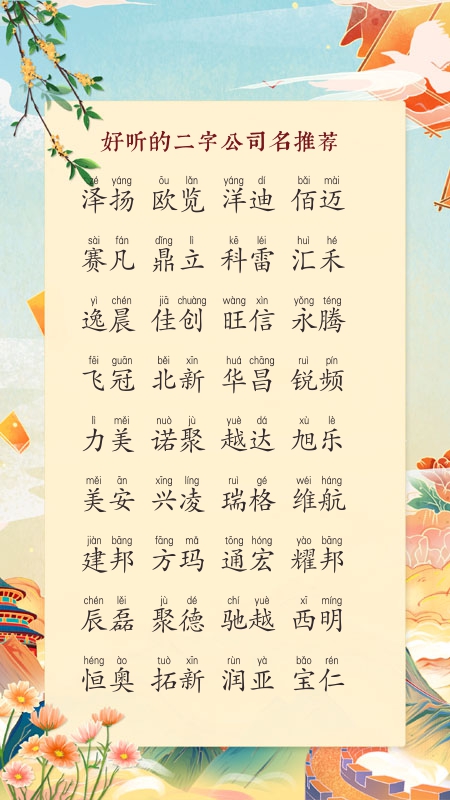 好听的二字公司名推荐
zé yáng ōu lǎn yáng dí bǎi mài
泽扬 欧览 洋迪 佰迈
sài fán dǐng lì kē léi huì hé
赛凡 鼎立 科雷 汇禾
yì chén jiā chuàng wàng xìn yǒng téng
逸晨 佳创 旺信 永腾
fēi guān běi xīn huá chāng ruì pín
飞冠 北新 华昌 锐频
lì měi nuò jù yuè dá xù lè
力美 诺聚 越达 旭乐
měi ān xīng líng ruì gé wéi háng
美安 兴凌 瑞格 维航
jiàn bāng fāng mǎ tōng hóng yào bāng
建邦 方玛 通宏 耀邦
chén lěi jù dé chí yuè xī míng
辰磊 聚德 驰越 西明
héng ào tuò xīn rùn yà bǎo rén
恒奥 拓新 润亚 宝仁